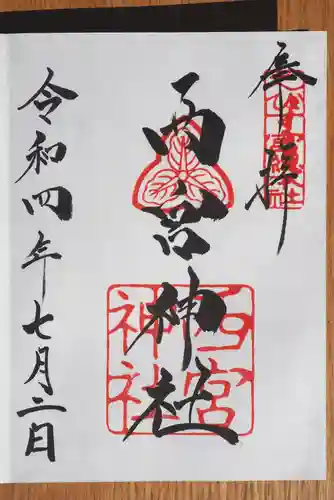 奉拝
西宮神社
西宮
神社
令和四年七月二日